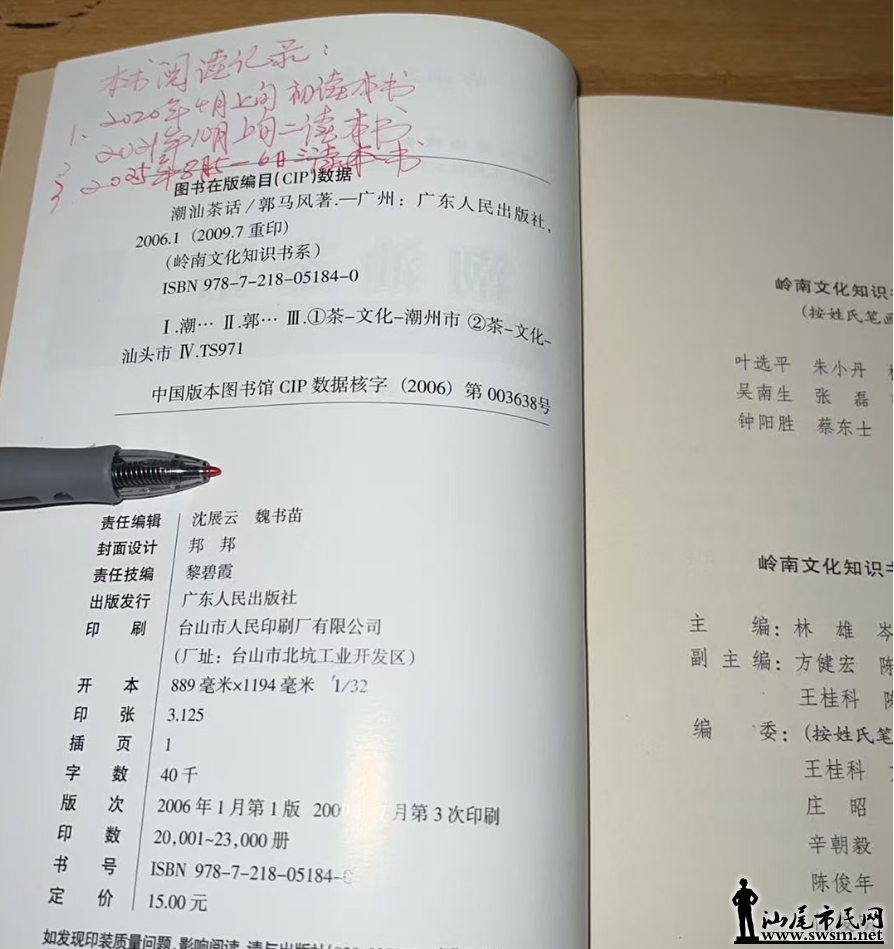 本书阅读记录：
1、2020年4月上旬初读本书
2、2021年10月上旬二读本书
3、2025年8月5－6日三读本书
图书在版编目(CIP)数据
潮汕茶话/郭马风著.—广州：广东人民出版社，
2006.1（2009.7重印）
（岭南文化知识书系）
ISBN 978-7-218-05184-0
Ⅰ.潮… Ⅱ.郭… Ⅲ.①茶-文化-潮州市 ②茶-文化-
汕头市 Ⅳ.TS971
中国版本图书馆CIP数据核字（2006）第003638号
责任编辑 沈展云 魏书苗
封面设计 邦 邦
责任技编 黎碧霞
出版发行 广东人民出版社
印 刷 台山市人民印刷厂有限公司
（厂址：台山市北坑工业开发区）
开 本 889毫米×1194毫米 1/32
印 张 3.125
插 页 1
字 数 40千
版 次 2006年1月第1版 200 月第3次印刷
印 数 20,001~23,000册
书 号 ISBN 978-7-218-05184-0
定 价 15.00元
如发现印装质量问题，影响阅读，请与出版社
岭南文化知识
（按姓氏笔画
叶选平 朱小丹
吴南生 张 磊
钟阳胜 蔡东士
岭南文化知识
主 编：林 雄 岑
副主编：方健宏 陈
王桂科 陈
编 委：（按姓氏笔
王桂科
庄 昭
辛朝毅
陈俊年
汕尾市民网
www.swsm.net